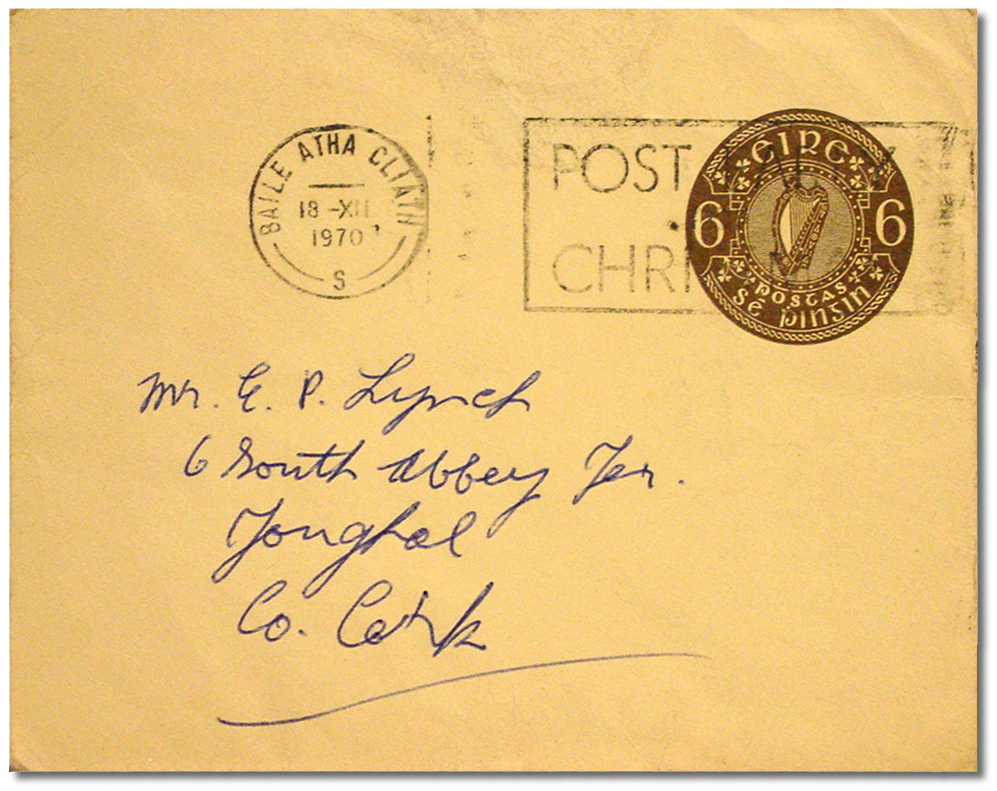 BAILE ATHA CLIATH
18-XII
1970
S
POST
CHRI
EIRE
6 6
POSTAS
sé pingin
Mr. E. P. Lynch
6 South Abbey Ter.
Youghal
Co. Cork